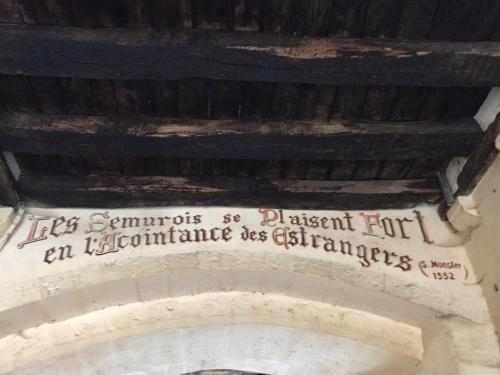 Les Semurois se Plaisent Fort
en l'Acointance des Estrangers
(S. Munster)
1552